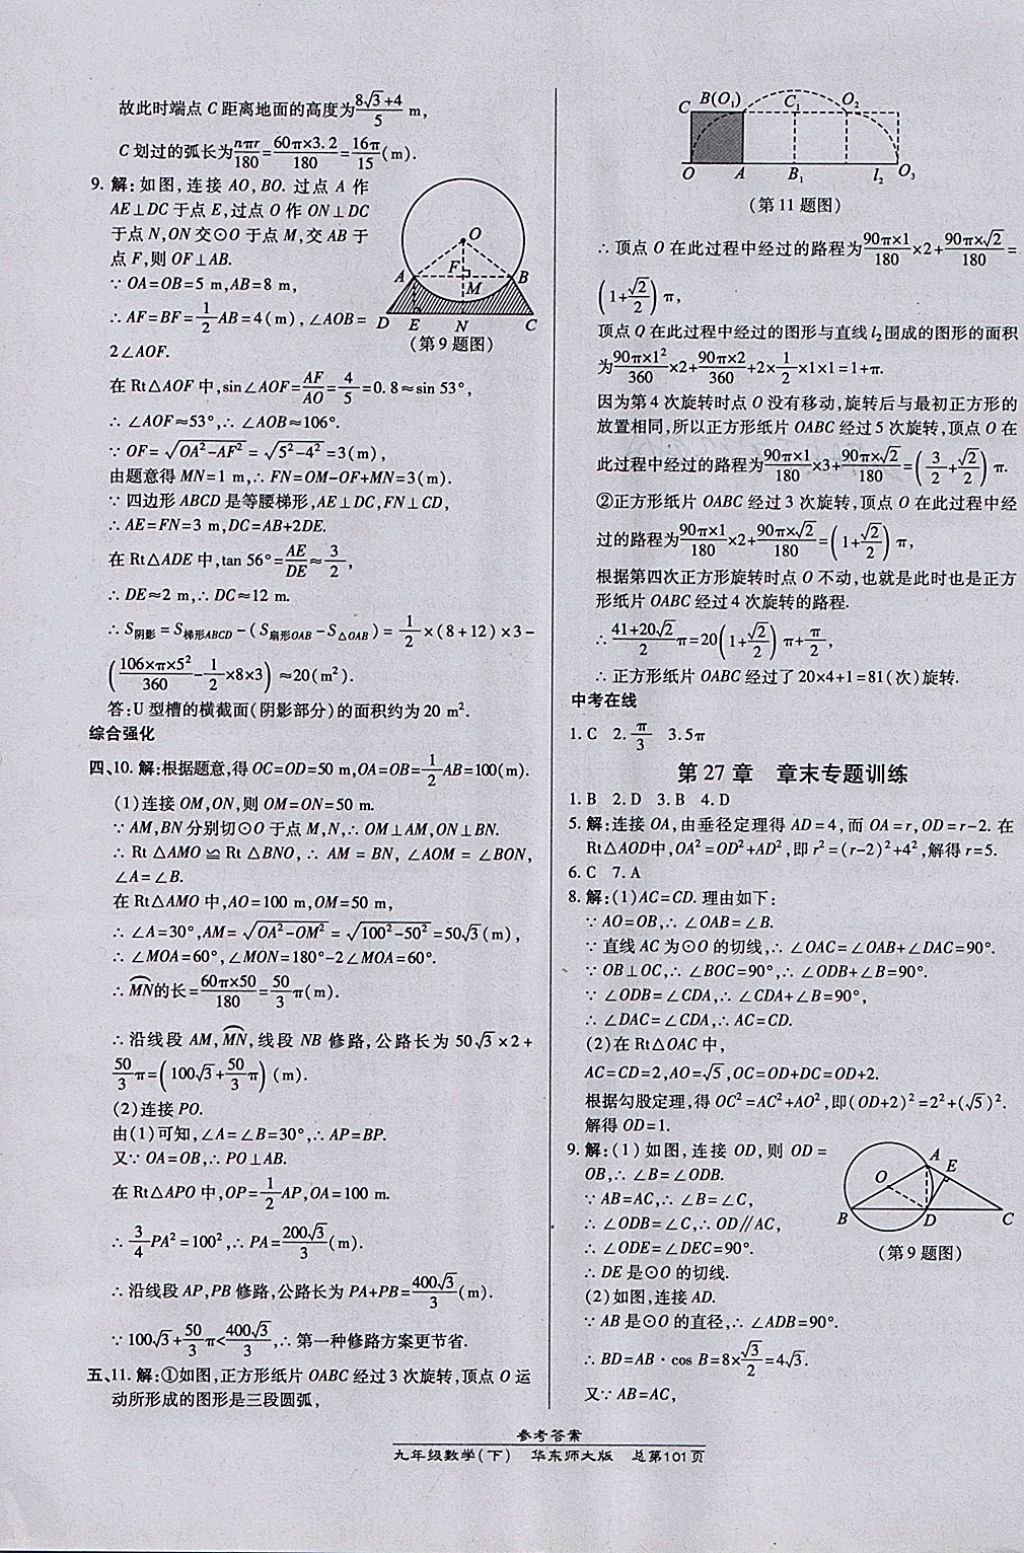 故此时端点 C 距离地面的高度为(8√3+4)/5 m,
C 划过的弧长为nπr/180=60π×3.2/180=16π/15(m).
9. 解:如图,连接 AO,BO. 过点 A 作
AE⊥DC 于点 E,过点 O 作 ON⊥DC
于点 N,ON 交⊙O 于点 M,交 AB 于
点 F,则 OF⊥AB.
∵ OA=OB=5 m,AB=8 m,
∴ AF=BF=1/2AB=4(m),∠AOB=
2∠AOF.
O
A F B
M
D E N C
(第 9 题图)
在 Rt△AOF 中,sin∠AOF=AF/AO=4/5=0.8≈sin 53°,
∴ ∠AOF≈53°,∴ ∠AOB≈106°.
∵ OF=√(OA²-AF²)=√(5²-4²)=3(m),
由题意得 MN=1 m,∴ FN=OM-OF+MN=3(m).
∵ 四边形 ABCD 是等腰梯形,AE⊥DC,FN⊥CD,
∴ AE=FN=3 m,DC=AB+2DE.
在 Rt△ADE 中,tan 56°=AE/DE≈3/2,
∴ DE≈2 m,∴ DC≈12 m.
∴ S阴影=S梯形ABCD-(S扇形OAB-S△OAB)=1/2×(8+12)×3-
(106×π×5²/360-1/2×8×3)≈20(m²).
答:U 型槽的横截面(阴影部分)的面积约为 20 m².
综合强化
四、10. 解:根据题意,得 OC=OD=50 m,OA=OB=1/2AB=100(m).
(1)连接 OM,ON,则 OM=ON=50 m.
∵ AM,BN 分别切⊙O 于点 M,N,∴ OM⊥AM,ON⊥BN.
∴ Rt △AMO ≌ Rt △BNO, ∴ AM = BN, ∠AOM = ∠BON,
∠A=∠B.
在 Rt△AMO 中,AO=100 m,OM=50 m,
∴ ∠A=30°,AM=√(OA²-OM²)=√(100²-50²)=50√3(m),
∴ ∠MOA=60°,∠MON=180°-2∠MOA=60°.
∴ M͡N的长=60π×50/180=50/3π(m).
∴ 沿线段 AM,M͡N,线段 NB 修路,公路长为 50√3×2+
50/3π=(100√3+50/3π)(m).
(2)连接 PO.
由(1)可知,∠A=∠B=30°,∴ AP=BP.
又∵ OA=OB,∴ PO⊥AB.
在 Rt△APO 中,OP=1/2AP,OA=100 m.
∴ 3/4PA²=100²,∴ PA=200√3/3(m).
∴ 沿线段 AP,PB 修路,公路长为 PA+PB=400√3/3(m).
∵ 100√3+50/3π<400√3/3,∴ 第一种修路方案更节省.
五、11. 解:①如图,正方形纸片 OABC 经过 3 次旋转,顶点 O 运
动所形成的图形是三段圆弧,
C B(O₁) C₁ O₂
O A B₁ l₂ O₃
(第 11 题图)
∴ 顶点 O 在此过程中经过的路程为90π×1/180×2+90π×√2/180=
(1+√2/2)π,
顶点 O 在此过程中经过的图形与直线 l₂围成的图形的面积
为90π×1²/360×2+90π×2/360+2×1/2×1×1=1+π.
因为第 4 次旋转时点 O 没有移动,旋转后与最初正方形的
放置相同,所以正方形纸片 OABC 经过 5 次旋转,顶点 O 在
此过程中经过的路程为90π×1/180×3+90π×√2/180=(3/2+√2/2)π.
②正方形纸片 OABC 经过 3 次旋转,顶点 O 在此过程中经
过的路程为90π×1/180×2+90π×√2/180=(1+√2/2)π,
根据第四次正方形旋转时点 O 不动,也就是此时也是正方
形纸片 OABC 经过 4 次旋转的路程.
∴ (41+20√2)/2π=20(1+√2/2)π+π/2,
∴ 正方形纸片 OABC 经过了 20×4+1=81(次)旋转.
中考在线
1. C 2. π/3 3. 5π
第 27 章 章末专题训练
1. B 2. D 3. B 4. D
5. 解:连接 OA,由垂径定理得 AD=4,而 OA=r,OD=r-2. 在
Rt△AOD中,OA²=OD²+AD²,即 r²=(r-2)²+4²,解得 r=5.
6. C 7. A
8. 解:(1)AC=CD. 理由如下:
∵ AO=OB,∴ ∠OAB=∠B.
∵ 直线 AC 为⊙O 的切线,∴ ∠OAC=∠OAB+∠DAC=90°.
∵ OB⊥OC,∴ ∠BOC=90°,∴ ∠ODB+∠B=90°.
∵ ∠ODB=∠CDA,∴ ∠CDA+∠B=90°,
∴ ∠DAC=∠CDA,∴ AC=CD.
(2)在 Rt△OAC 中,
AC=CD=2,AO=√5,OC=OD+DC=OD+2.
根据勾股定理,得 OC²=AC²+AO²,即(OD+2)²=2²+(√5)².
解得 OD=1.
9. 解:(1)如图,连接 OD,则 OD=
OB,∴ ∠B=∠ODB.
∵ AB=AC,∴ ∠B=∠C,
∴ ∠ODB=∠C,∴ OD∥AC,
∴ ∠ODE=∠DEC=90°.
∴ DE 是⊙O 的切线.
A E
O
B D C
(第 9 题图)
(2)如图,连接 AD.
∵ AB 是⊙O 的直径,∴ ∠ADB=90°.
∴ BD=AB·cos B=8×√3/2=4√3.
又∵ AB=AC,
参考答案
九年级数学(下) 华东师大版 总第101页